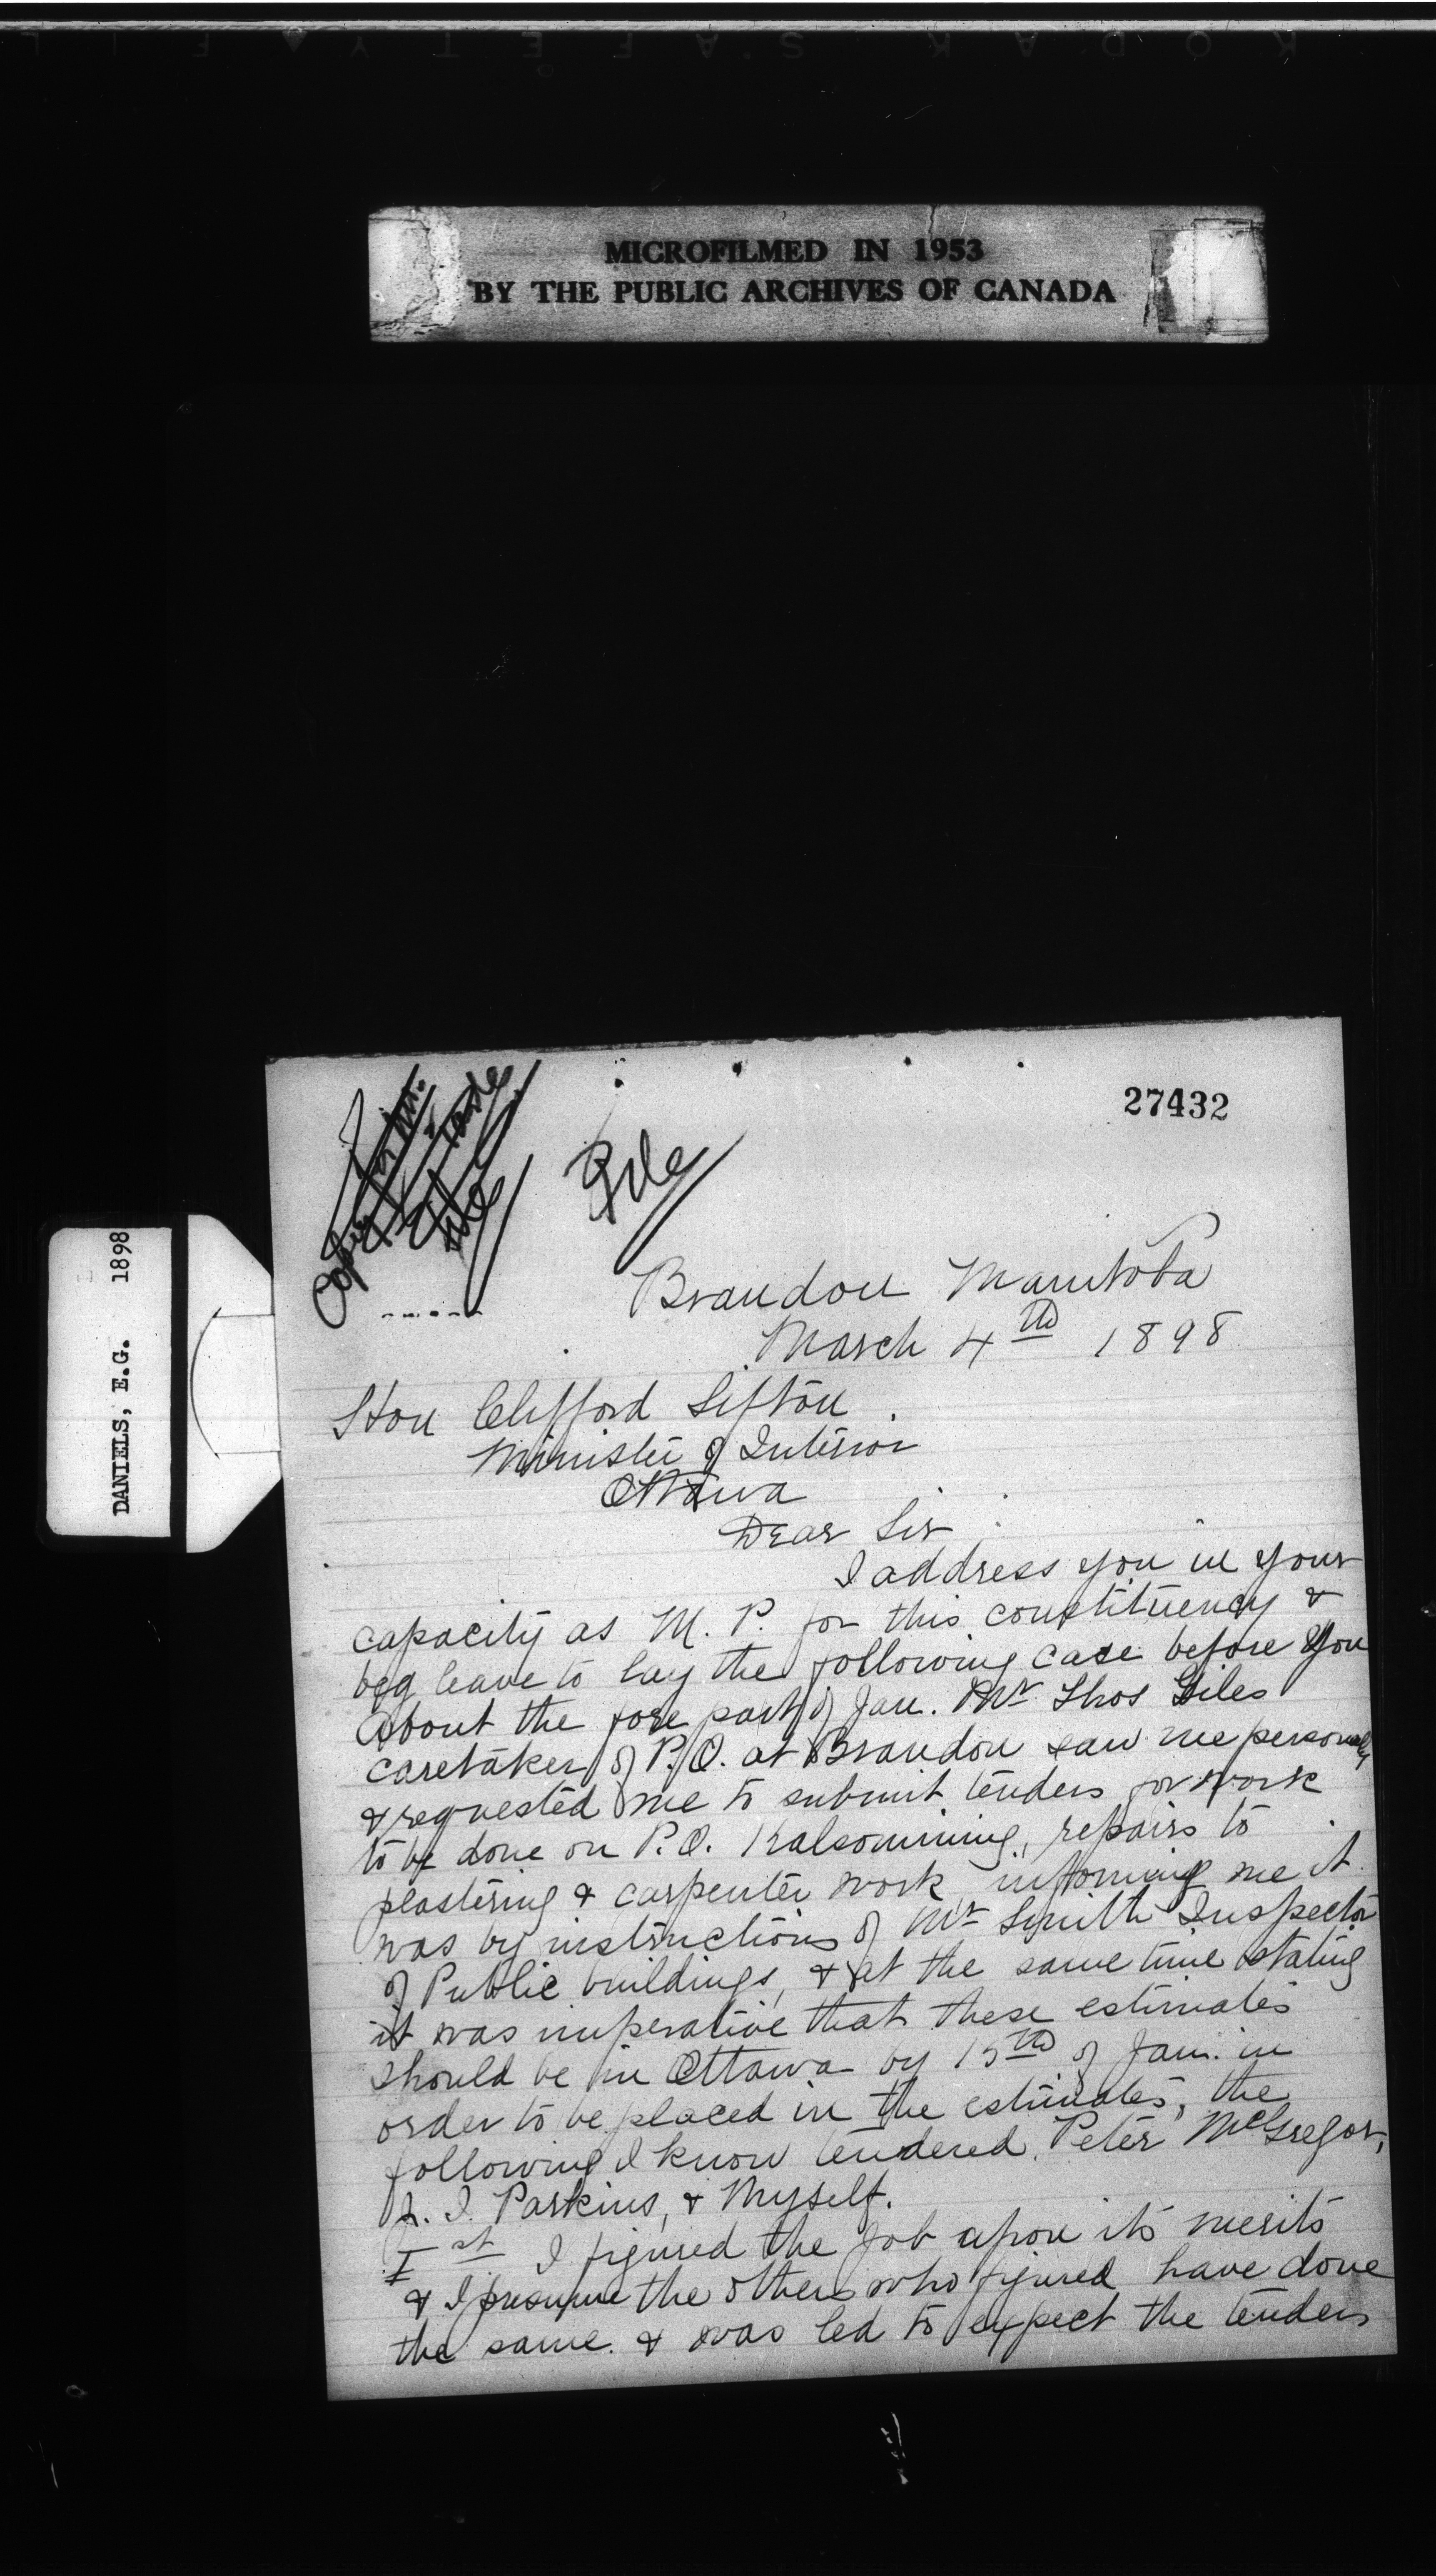 KODAK SAFETY FIL
MICROFILMED IN 1953
BY THE PUBLIC ARCHIVES OF CANADA
DANIELS, E.G. 1898
27432
File
Brandon Manitoba
March 4th 1898
Hon Clifford Sifton
Minister of Interior
Ottawa
Dear Sir
I address you in your
capacity as M. P. for this constituency &
beg leave to lay the following case before you
About the fore part of Jan. Mr Thos Giles
caretaker of P.O. at Brandon saw me personally
& requested me to submit tenders for work
to be done on P.O. Kalsomining, repairs to
plastering & carpenter work informing me it
was by instructions of Mr Smith Inspector
of Public buildings, & at the same time stating
it was imperative that these estimates
should be in Ottawa by 15th of Jan. in
order to be placed in the estimates, the
following I know tendered. Peter McGregor,
J. I. Parkins, & Myself.
Ist I figured the job upon its merits
& I presume the others who figured have done
the same. & was led to expect the tenders